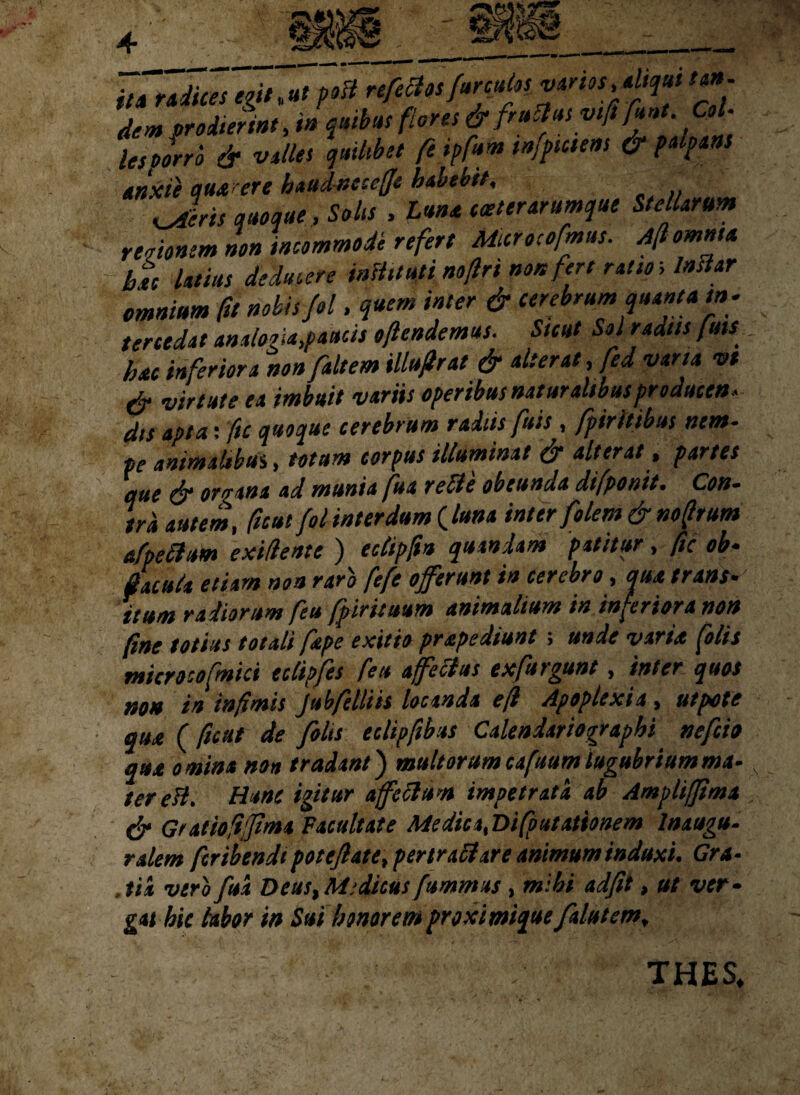 4
ita radices egit, ut poſt refectos ſurculos varios, aliqui tan-
dem prodierint, in quibus flores & fructus viſi ſunt. Col-
les porro & valles quilibet ſe ipſum inſpiciens & palpans
anxiè quærere haud neceſſe habebit.
Aëris quoque, Solis, Lunæ cæterarumque Stellarum
regionem non incommodè refert Microcoſmus. Aſt omnia
hæc latius deducere inſtituti noſtri non fert ratio; Inſtar
omnium ſit nobis ſol, quem inter & cerebrum quanta in-
tercedat analogia, paucis oſtendemus. Sicut Sol radiis ſuis
hæc inferiora non ſaltem illuſtrat & alterat, ſed varia vi
& virtute ea imbuit variis operibus naturalibus producen-
dis apta: ſic quoque cerebrum radiis ſuis, ſpiritibus nem-
pe animalibus, totum corpus illuminat & alterat, partes
que & organa ad munia ſua rectè obeunda diſponit. Con-
trà autem, ſicut ſol interdum (luna inter ſolem & noſtrum
aſpectum exiſtente) eclipſin quandam patitur, ſic ob-
ſtacula etiam non rarò ſeſe offerunt in cerebro, quæ trans-
itum radiorum ſeu ſpirituum animalium in inferiora non
ſine totius totali ſæpe exitio præpediunt; unde variæ ſolis
microcoſmici eclipſes ſeu affectus exſurgunt, inter quos
non in infimis ſubſelliis locanda eſt Apoplexia, utpote
quæ (ſicut de ſolis eclipſibus Calendariographi neſcio
quæ omina non tradant) multorum caſuum lugubrium ma-
ter eſt. Hunc igitur affectum impetratâ ab Ampliſſima
& Gratioſiſſima Facultate Medica, Diſputationem Inaugu-
ralem ſcribendi poteſtate, pertractare animum induxi. Gra-
tiâ verò ſuâ Deus, Medicus ſummus, mihi adſit, ut ver-
gat hic labor in Sui honorem proximique ſalutem.
THES.